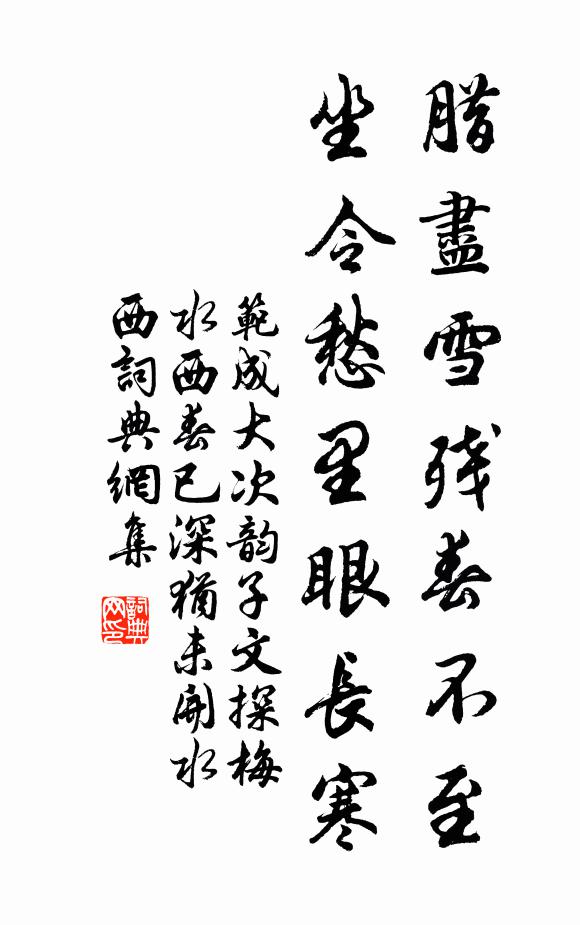 腊盡雪残春不至
坐令愁里眼長寒
範成大次韵子文探梅
水西春已深猶未開水
西詞典網集
詞典
网印